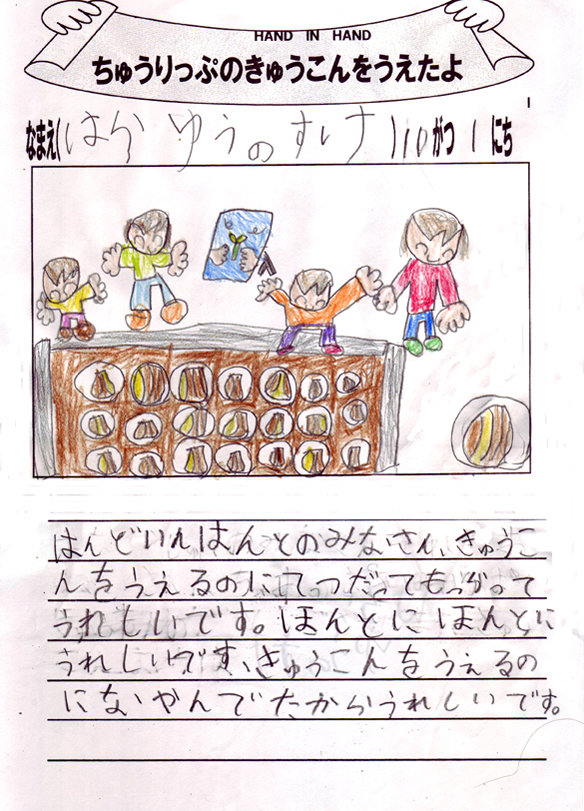 HAND IN HAND
ちゅうりっぷのきゅうこんをうえたよ
なまえ(はら ゆうのすけ)10がつ1にち
はんどいんはんとのみなさん、きゅうこ
んをうえるのにてつだってもらって
うれもいです。ほんとにほんとに
うれしいです、きゅうこんをうえるの
になやんでたからうれしいです。